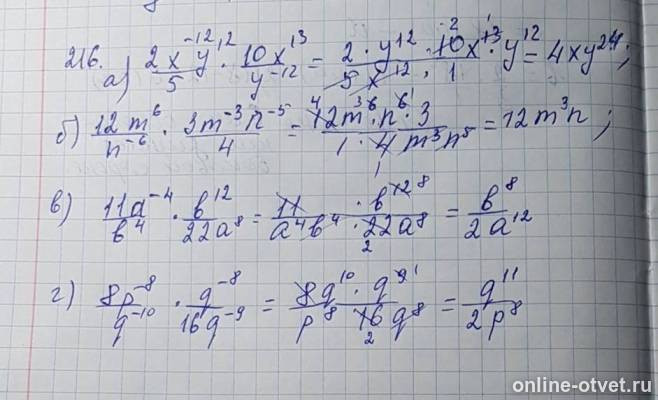 216.
а) 2x⁻¹²y¹²/5 · 10x¹³/y⁻¹² = 2 · y¹² · 10x¹³ · y¹²/5x¹² · 1 = 4xy²⁴;
б) 12m⁶/n⁻⁶ · 3m⁻³n⁻⁵/4 = 12m⁶ · n⁶ · 3/1 · 4m³n⁵ = 12m³n;
в) 11a⁻⁴/b⁴ · b¹²/22a⁸ = 11 · b¹²/a⁴b⁴ · 22a⁸ = b⁸/2a¹²
г) 8p⁻⁸/q⁻¹⁰ · q⁻⁸/16q⁻⁹ = 8q¹⁰ · q⁹/p⁸ 16q⁸ = q¹¹/2p⁸
online-otvet.ru